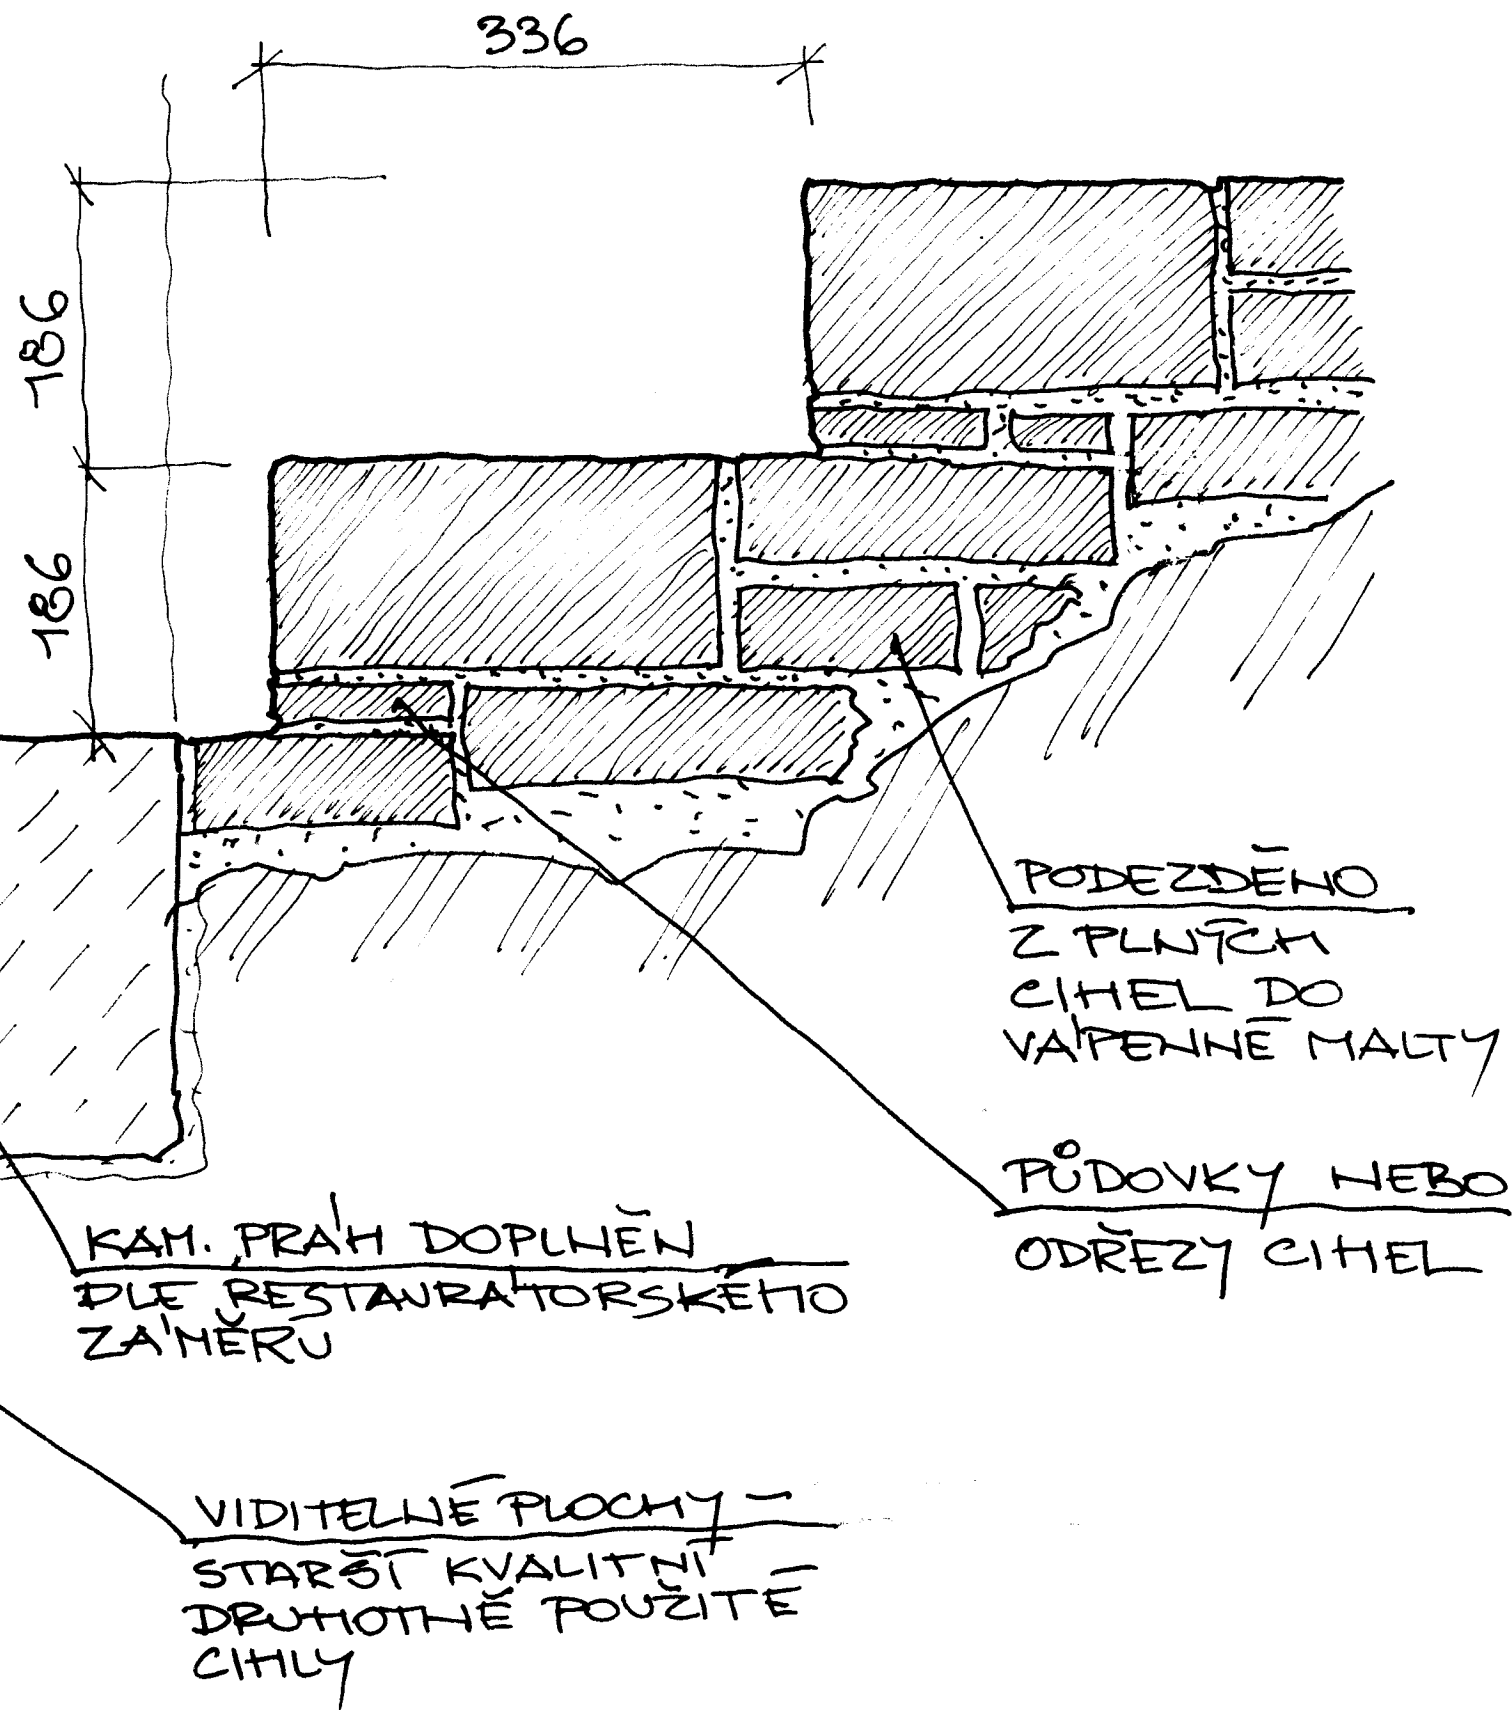 336
186
186
PODEZDĚNO
Z PLNÝCH
CIHEL DO
VÁPENNÉ MALTY
PŮDOVKY NEBO
ODŘEZY CIHEL
KAM. PRÁH DOPLNĚN
DLE RESTAURÁTORSKÉHO
ZÁMĚRU
VIDITELNÉ PLOCHY –
STARŠÍ KVALITNÍ
DRUHOTNĚ POUŽITÉ
CIHLY